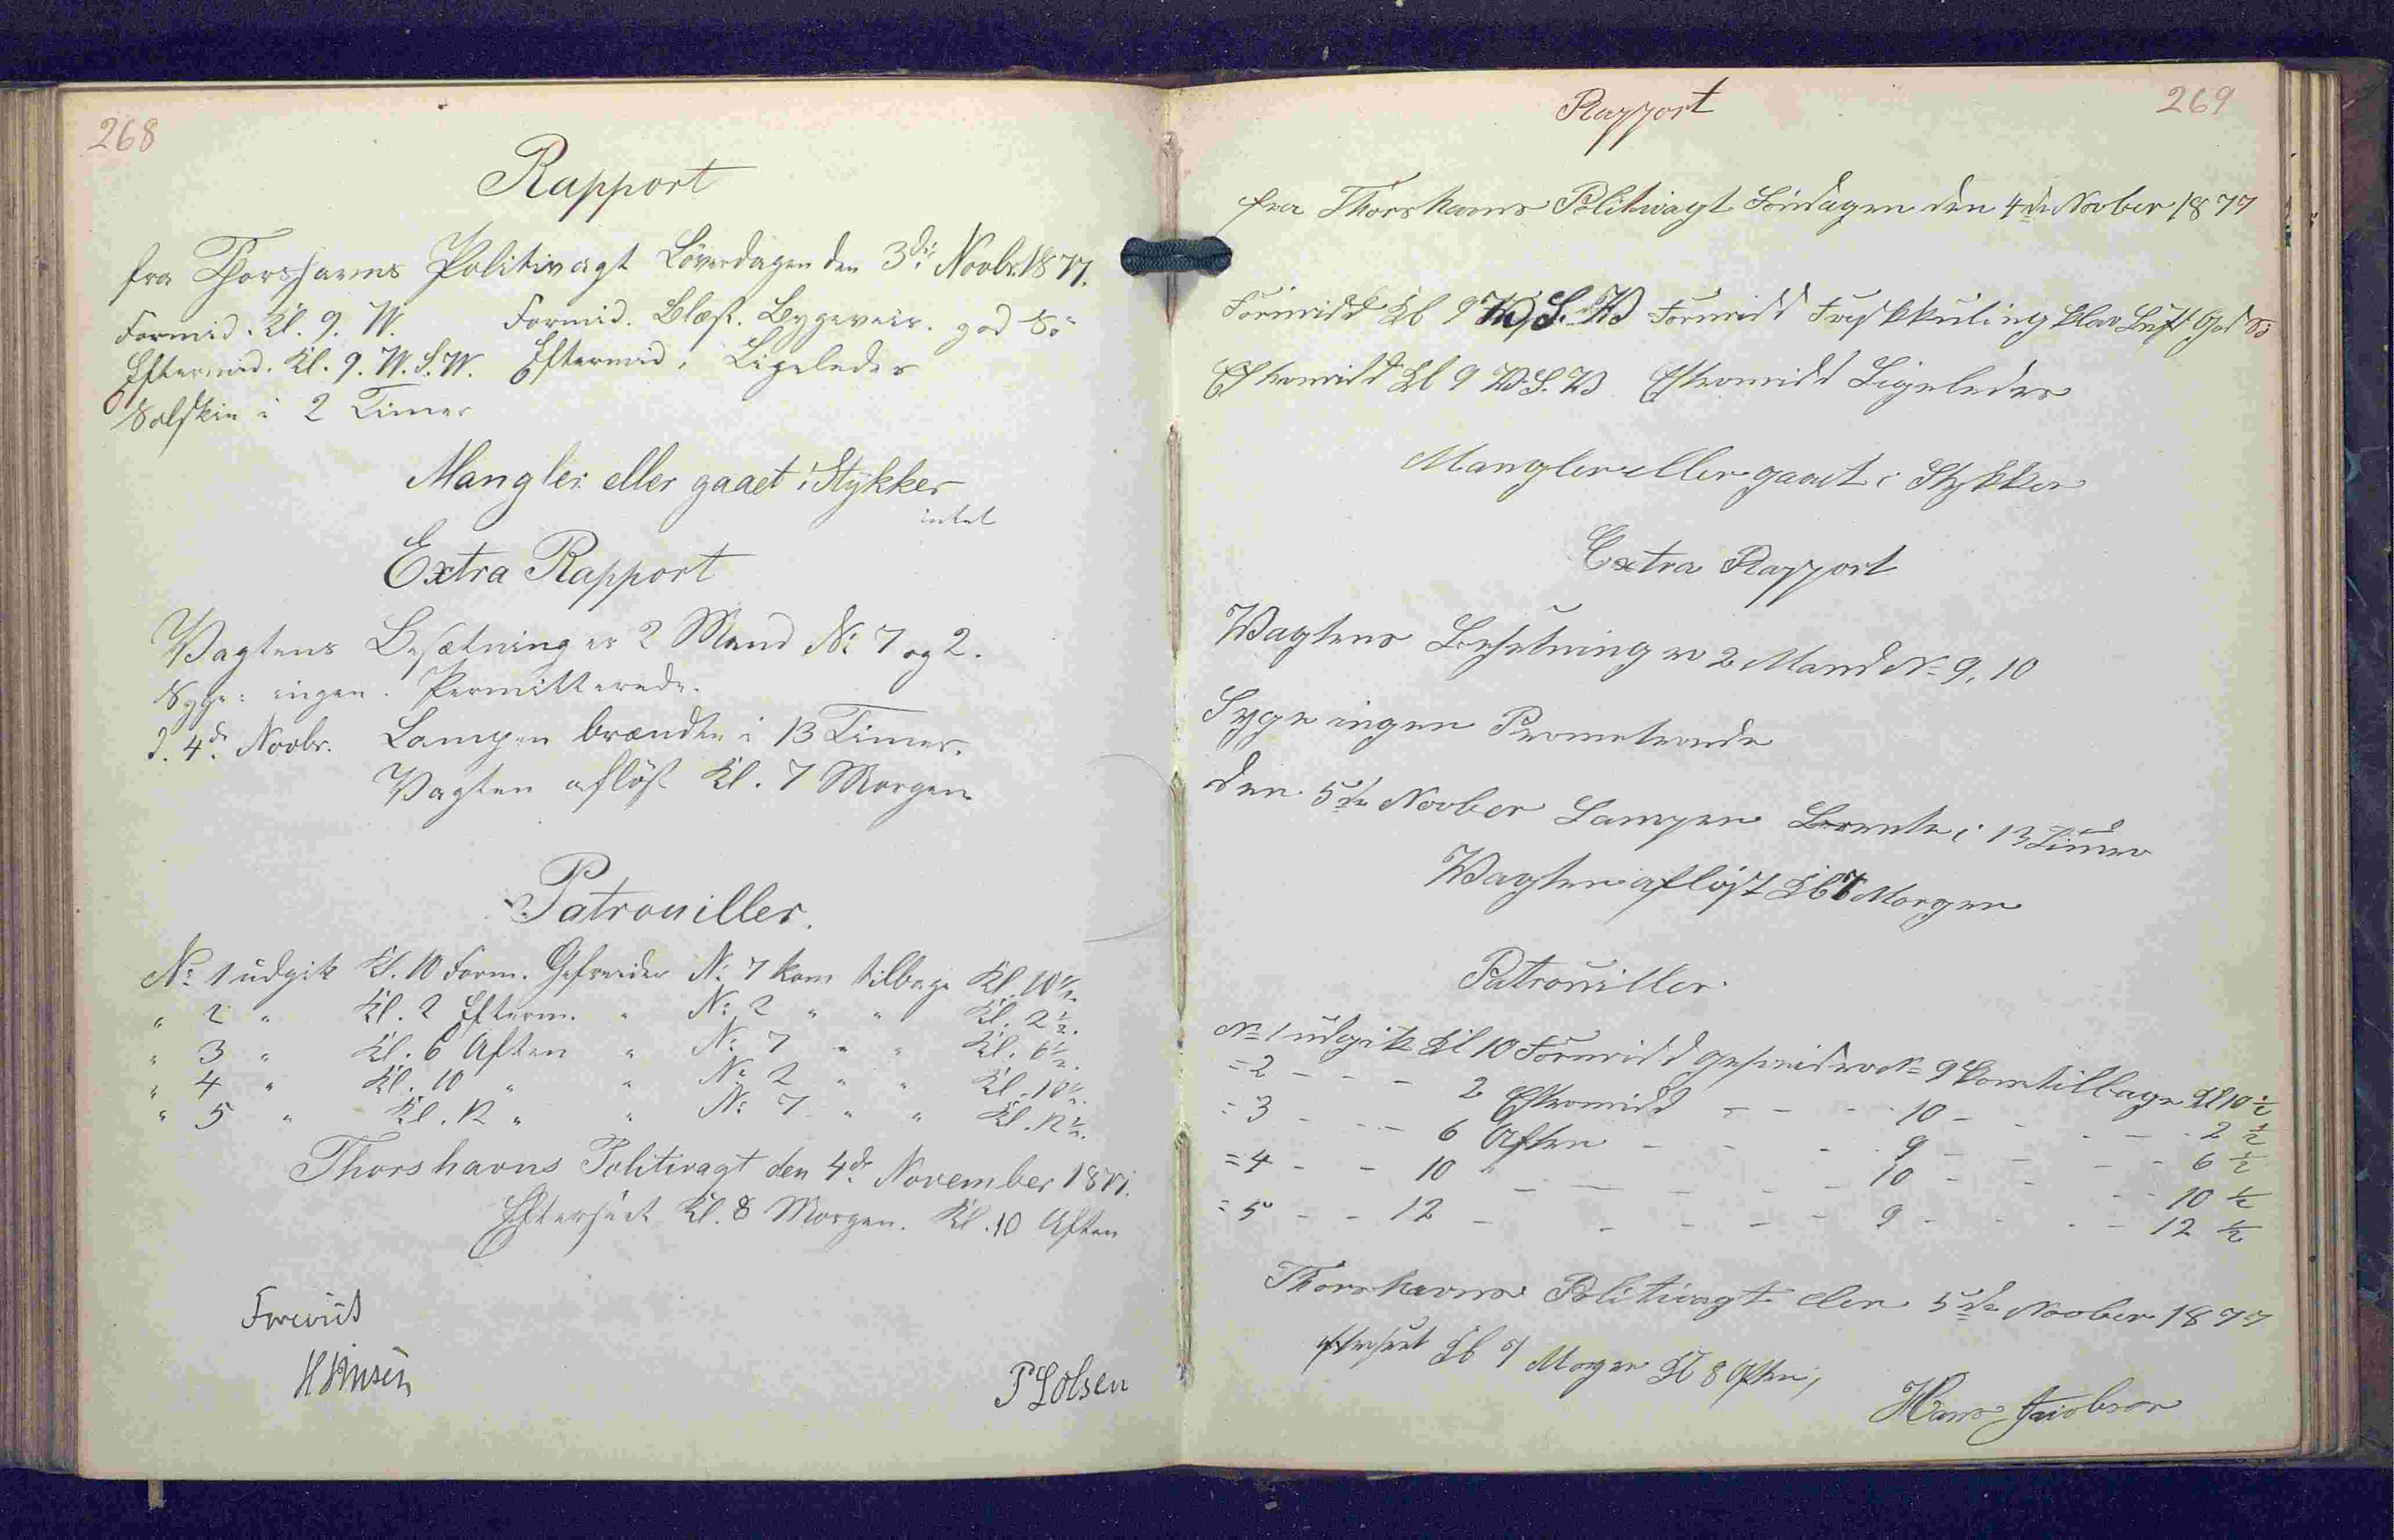 268
Rapport
fra Thorshavns Politivagt Löverdagen den 3die Novbr. 1877.
Formid. Kl. 9. W. Formid. Blæst. Bygeveir. god Sö
Eftermid. Kl. 9. W.S.W. Eftermid. Ligeledes
Solskin i 2 Timer
Mangler eller gaaet i Stykker
intet
Extra Rapport
Vagtens Besætning er 2 Mand No 7 og 2.
Syge: ingen. Permitterede.
d. 4de Novbr. Lampen brændte i 13 Timer.
Vagten aflöst Kl. 7 Morgen
Patrouiller.
No 1 udgik Kl. 10 Form. Gefreider No 7 kom tilbage Kl. 10½.
" 2 " Kl. 2 Efterm. " No 2 " " Kl. 2½.
" 3 " Kl. 6 Aften " No 7 " " Kl. 6½.
" 4 " Kl. 10 " " No 2 " " Kl. 10½.
" 5 " Kl. 12 " " No 7 " " Kl. 12½.
Thorshavns Politivagt den 4de November 1877.
Efterseet Kl. 8 Morgen. Kl. 10 Aften
Foreviist
P Lolsen
269
Rapport
fra Thorshavns Politivagt Söndagen den 4de Novber 1877
Formidd Kl 9 W.S.W Formidd Friskkuling klar Luft God Sö
Eftermidd Kl 9 W.S.W Eftermidd Ligeledes
Mangler eller gaaet i Stykker
Extra Rapport
Wagtens Besetning er 2 Mand No 9, 10
Syge ingen Prometerede
den 5te Novber Lampen Brente i 13 Timer
Wagten aflöst Kl 7 Morgen
Patrouiller.
No 1 udgik Kl 10 Formidd gefreider No 9 kom tilbage Kl 10½
= 2 - - - 2 Eftermidd - - - 10 - - - - 2½
= 3 - - - 6 Aften - - - 9 - - - - 6½
= 4 - - 10 " - - - - - 10 - - - - 10½
= 5 - - 12 - - - - - 9 - - - - 12½
Thorshavns Politivagt den 5te Novber 1877
efterseet Kl 9 Morgen Kl 8 Aften,
Hans Jacobsen